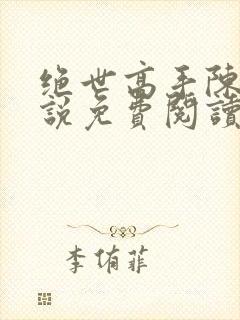 绝世高手陳
說免費閱讀
李侑菲